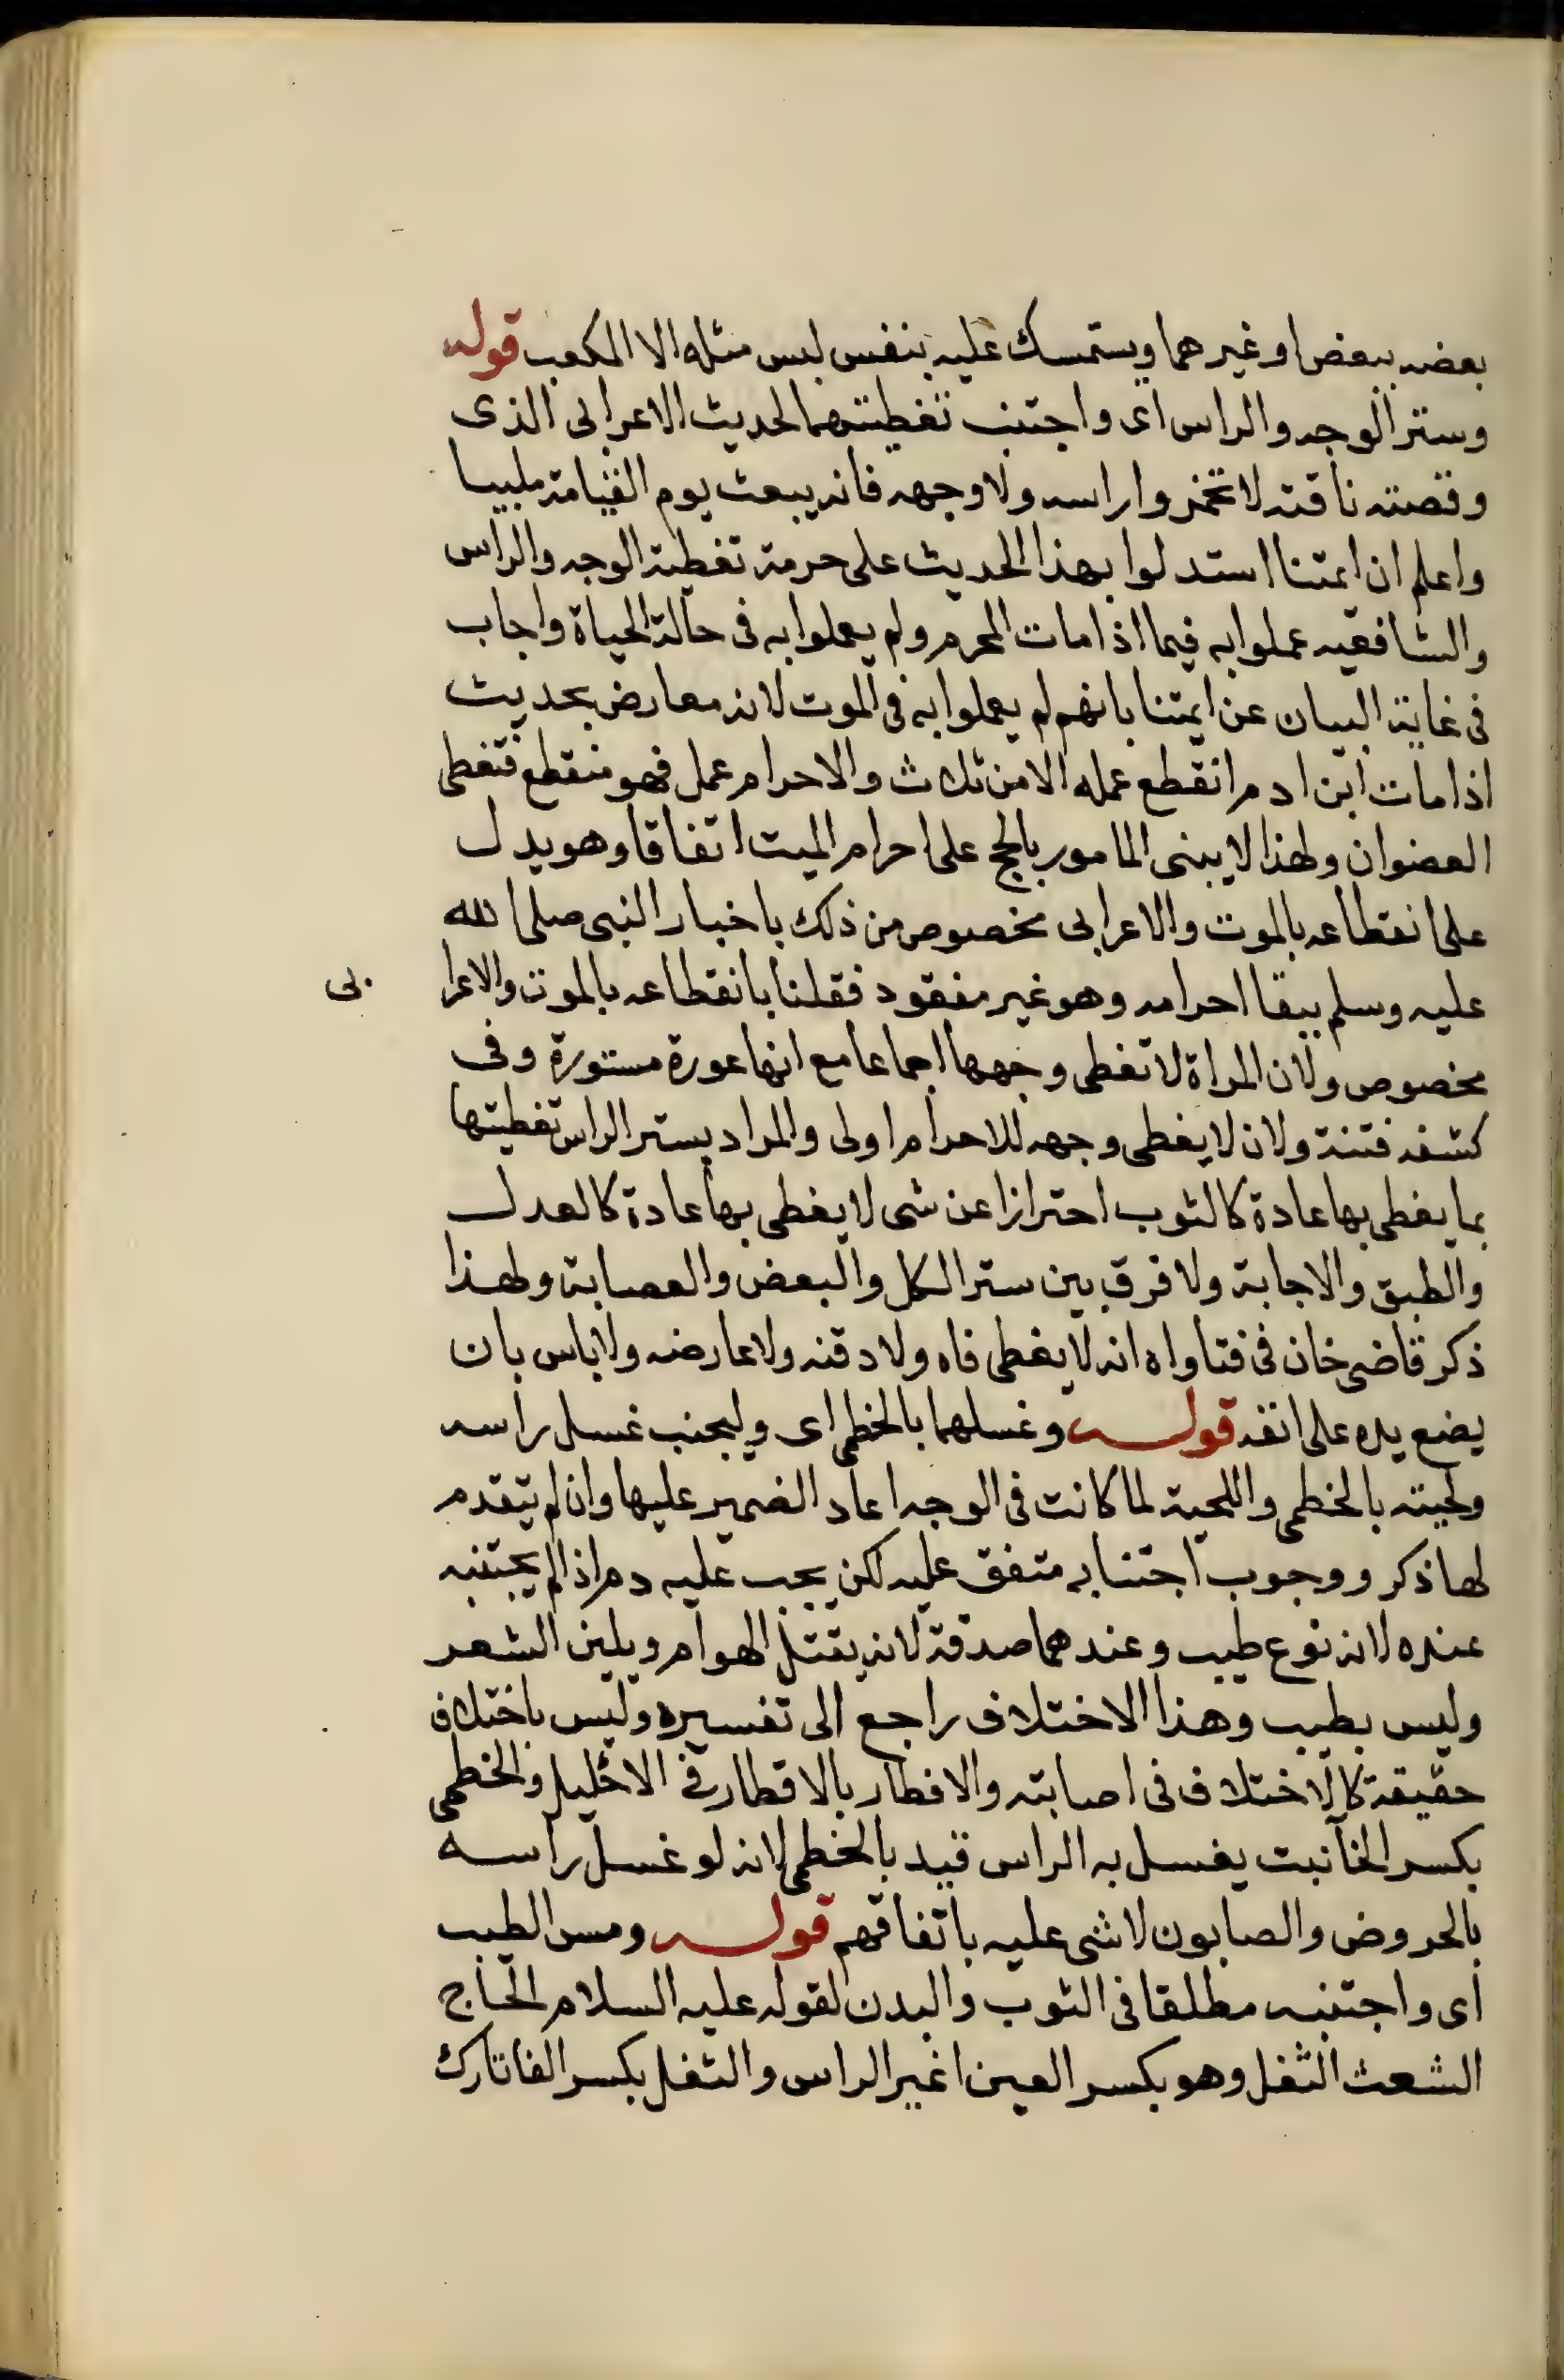 بعضه ببعض او غيرهما ويستمسك عليه بنفس لبس مثله الا المكعب قوله
وستر الوجه والراس اى واجتنب تغطيتهما لحديث الاعرابى الذى
وقصته ناقته لا تخمروا راسه ولا وجهه فانه يبعث يوم القيامة ملبيا
واعلم ان ايمتنا استدلوا بهذا الحديث على حرمة تغطية الوجه والراس
والشافعيه عملوا به فيما اذا مات المحرم ولم يعملوا به فى حالة الحياة واجاب
فى غاية البيان عن ايمتنا بانهم لم يعملوا به فى الموت لانه معارض بحديث
اذا مات ابن ادم انقطع عمله الا من ثلاث والاحرام عمل فهو منقطع فتغطى
العضوان ولهذا لا يبنى المامور بالحج على احرام الميت اتفاقا وهو يدل
على انقطاعه بالموت والاعرابى مخصوص من ذلك باخبار النبى صلى الله
عليه وسلم ببقا احرامه وهو غير مفقود فقلنا بانقطاعه بالموت والاعرا بى
مخصوص ولان المراة لا تغطى وجهها اجماعا مع انها عورة مستورة وفى
كشفه فتنة ولان لا يغطى وجهه للاحرام اولى والمراد بستر الراس تغطيتها
بما يغطى بها عادة كالثوب احترازا عن شى لا يغطى بها عادة كالعدل
والطبق والاجابة ولا فرق بين ستر الكل والبعض والعصابة ولهذا
ذكر قاضى خان فى فتاواه انه لا يغطى فاه ولا دقنه ولا عارضه ولا باس بان
يضع يده على انفه قوله وغسلهما بالخطمى اى وليجنب غسل راسه
ولحيته بالخطمى واللحية لما كانت فى الوجه اعاد الضمير عليها وان لم يتقدم
لها ذكر ووجوب اجتنابه متفق عليه لكن يجب عليه دم اذا لم يجتنبه
عنده لانه نوع طيب وعندهما صدقة لانه يقتل الهوام ويلين الشعر
وليس بطيب وهذا الاختلاف راجع الى تفسيره وليس باختلاف
حقيقة كالاختلاف فى اصابته والافطار بالاقطار فى الاحليل والخطمى
بكسر الخا نبت يغسل به الراس قيد بالخطمى لانه لو غسل راسه
بالحروض والصابون لا شى عليه باتفاقهم قوله ومس الطيب
اى واجتنبه مطلقا فى الثوب والبدن لقوله عليه السلام الحاج
الشعث الثفل وهو بكسر العين اغبر الراس والتفل بكسر الفا تارك